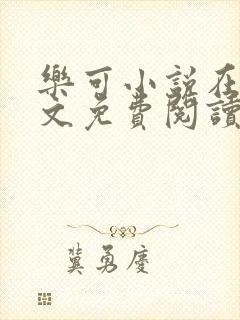 樂可小說在
文免費閱讀
龔勇慶